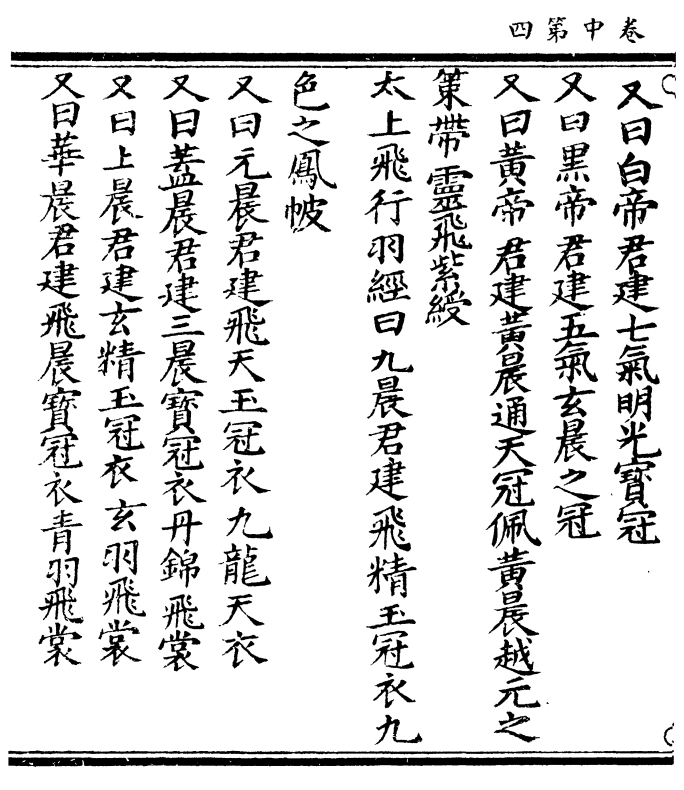 卷中第四
又曰白帝君建七氣明光寶冠
又曰黒帝君建五氣玄晨之冠
又曰黃帝君建黃晨通天冠佩黃晨越元之
策帶靈飛紫綬
太上飛行羽經曰九晨君建飛精玉冠衣九
色之鳳帔
又曰元晨君建飛天玉冠衣九龍天衣
又曰蓋晨君建三晨寶冠衣丹錦飛裳
又曰上晨君建玄精玉冠衣玄羽飛裳
又曰華晨君建飛晨寶冠衣青羽飛裳